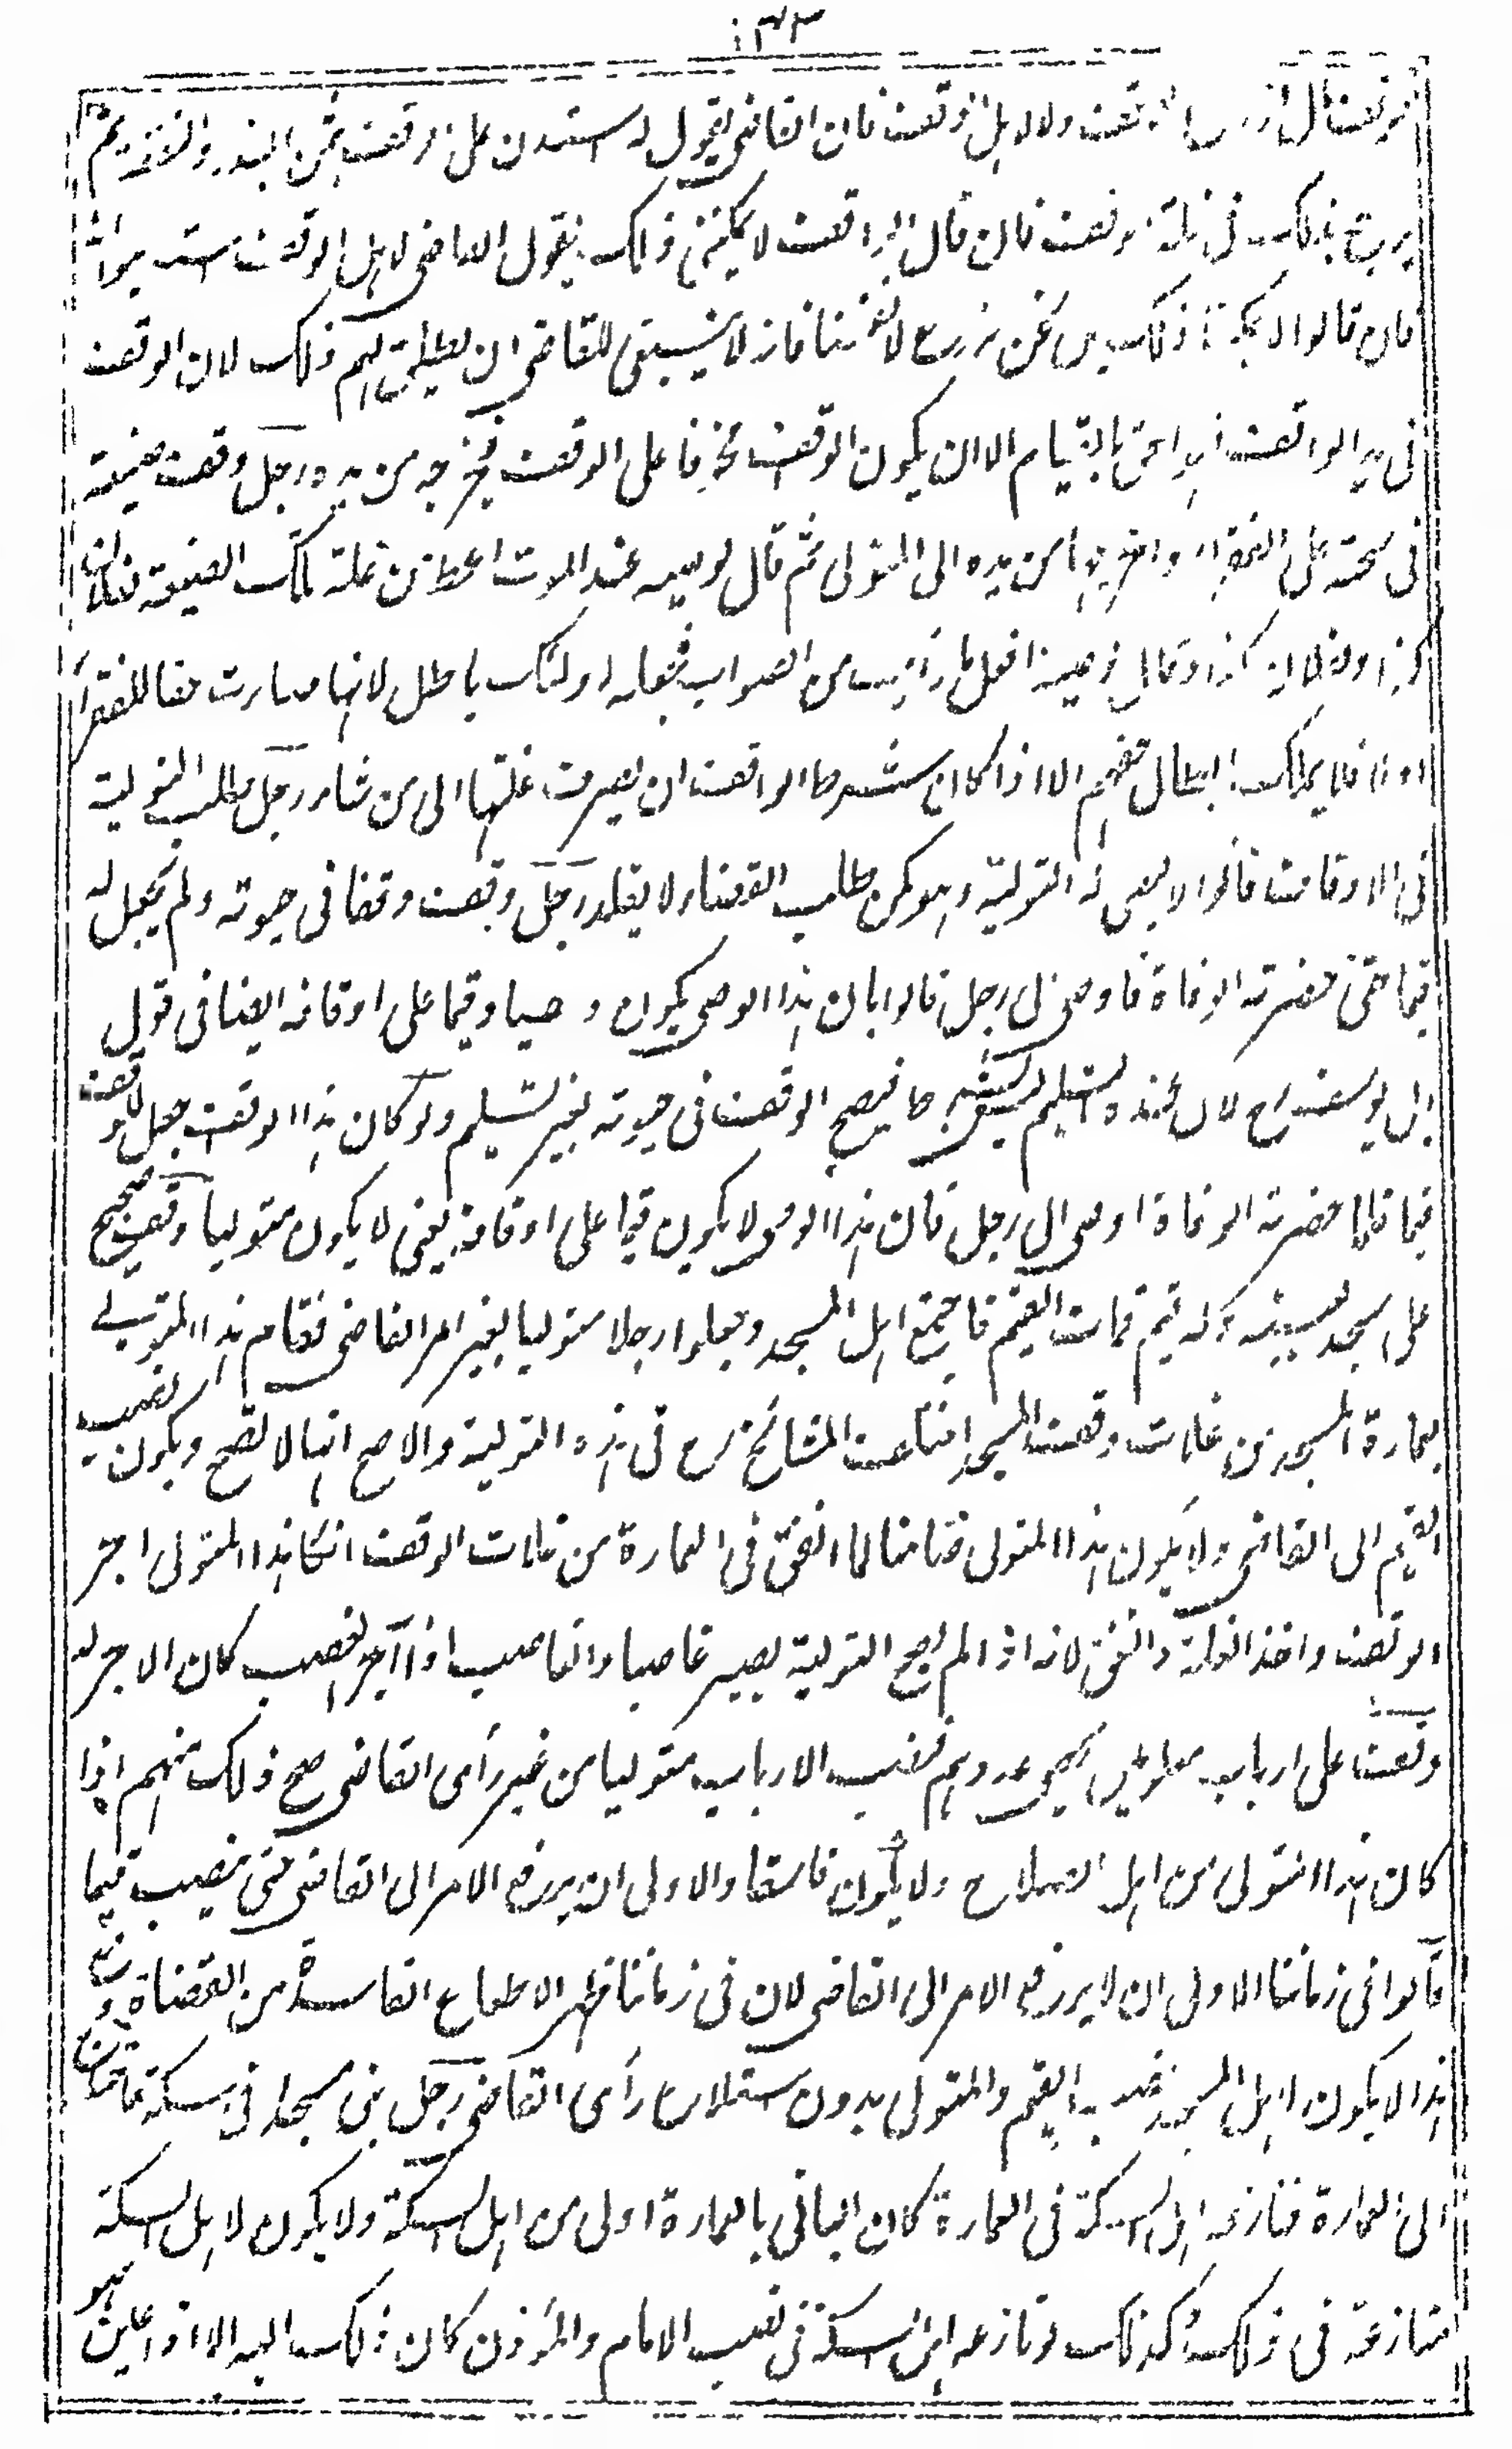 الوقف ولا لاهل الوقف فان القاضي يقول له استدن على الوقف ثمن البذر والنفقة ثم
يرجع بذلك في غلة الوقف فان قال الواقف لا يمكنني ذلك يقول القاضي لاهل الوقف استدينوا
فان قالوا لا يمكننا ذلك بل نحن نزرع لانفسنا فانه لا ينبغي للقاضي ان يطلق لهم ذلك لان الوقف
في يد الواقف فهو احق بالقيام الا ان يكون الواقف مخوفا على الوقف فيخرجه من يده رجل وقف ضيعة
في صحته على الفقراء واخرجها من يده الى المتولي ثم قال لوصيه عند الموت اعط من غلة تلك الضيعة فلانا
كذا وفلانا كذا وقال لوصيه افعل ما رأيت من الصواب فجعله لاولئك باطل لانها صارت حقا للفقراء
اولا فلا يملك ابطال حقهم الا اذا كان شرط الواقف ان يصرف غلتها الى من شاء رجل طلب التولية
في الاوقاف قالوا لا يعطى له التولية وهو كمن طلب القضاء لا يقلد رجل وقف وقفا في حيوته ولم يجعل له
قيما حتى حضرته الوفاة فاوصى الى رجل قالوا بان هذا الوصي يكون وصيا وقيما على اوقافه ايضا في قول
ابي يوسف رح لان عنده التسليم ليس بشرط فيصح الوقف في حيوته بغير تسليم ولو كان هذا الواقف جعل للوقف
قيما فلما حضرته الوفاة اوصى الى رجل فان هذا الوصي لا يكون قيما على اوقافه يعني لا يكون متوليا وقف صحيح
على مسجد بعينه وله قيم فمات القيم فاجتمع اهل المسجد وجعلوا رجلا متوليا بغير امر القاضي فقام هذا المتولي
بعمارة المسجد من غلات وقف المسجد اختلف المشائخ رح في هذه التولية والاصح انها لا تصح ويكون نصب
القيم الى القاضي ولا يكون هذا المتولي ضامنا لما انفق في العمارة من غلات الوقف ان كان هذا المتولي اجر
الوقف واخذ الغلة وانفق لانه اذا لم تصح التولية يصير غاصبا والغاصب اذا آجر الغصب كان الاجر له
وقف على ارباب معلومين يحصى عددهم فنصب الارباب متوليا من غير رأي القاضي صح ذلك منهم اذا
كان هذا المتولي من اهل الصلاح ولا يكون فاسقا والاولى ان يرفع الامر الى القاضي حتى ينصب قيما
قالوا في زماننا الاولى ان لا يرفع الامر الى القاضي لان في زماننا ظهر الاطماع الفاسدة من القضاة ومع
هذا لا يكون لاهل المسجد نصب القيم والمتولي بدون استطلاع رأي القاضي رجل بنى مسجدا في سكة فاحتاج
الى العمارة فنازعه اهل السكة في العمارة كان الباني بالعمارة اولى من اهل السكة ولا يكون لاهل السكة
منازعة في ذلك وكذلك لو نازعه اهل السكة في نصب الامام والمؤذن كان ذلك اليه الا اذا عين هو